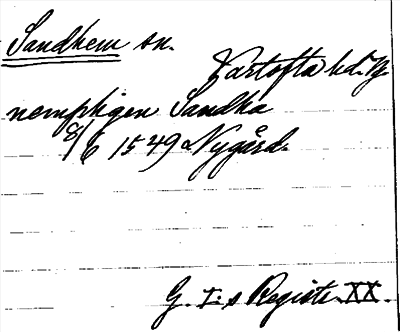 Sandhem sn.
Vartofta hd. Vg.
nempligen Sandha
8/6 1549 Nygård.
G. I:s Registr. XX.